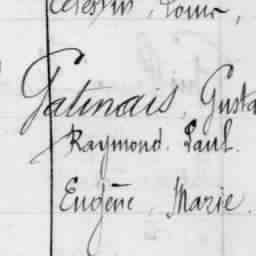 Célestin, Louis,
Gatinais, Gusta
Raymond. Paul.
Eugène, Marie.